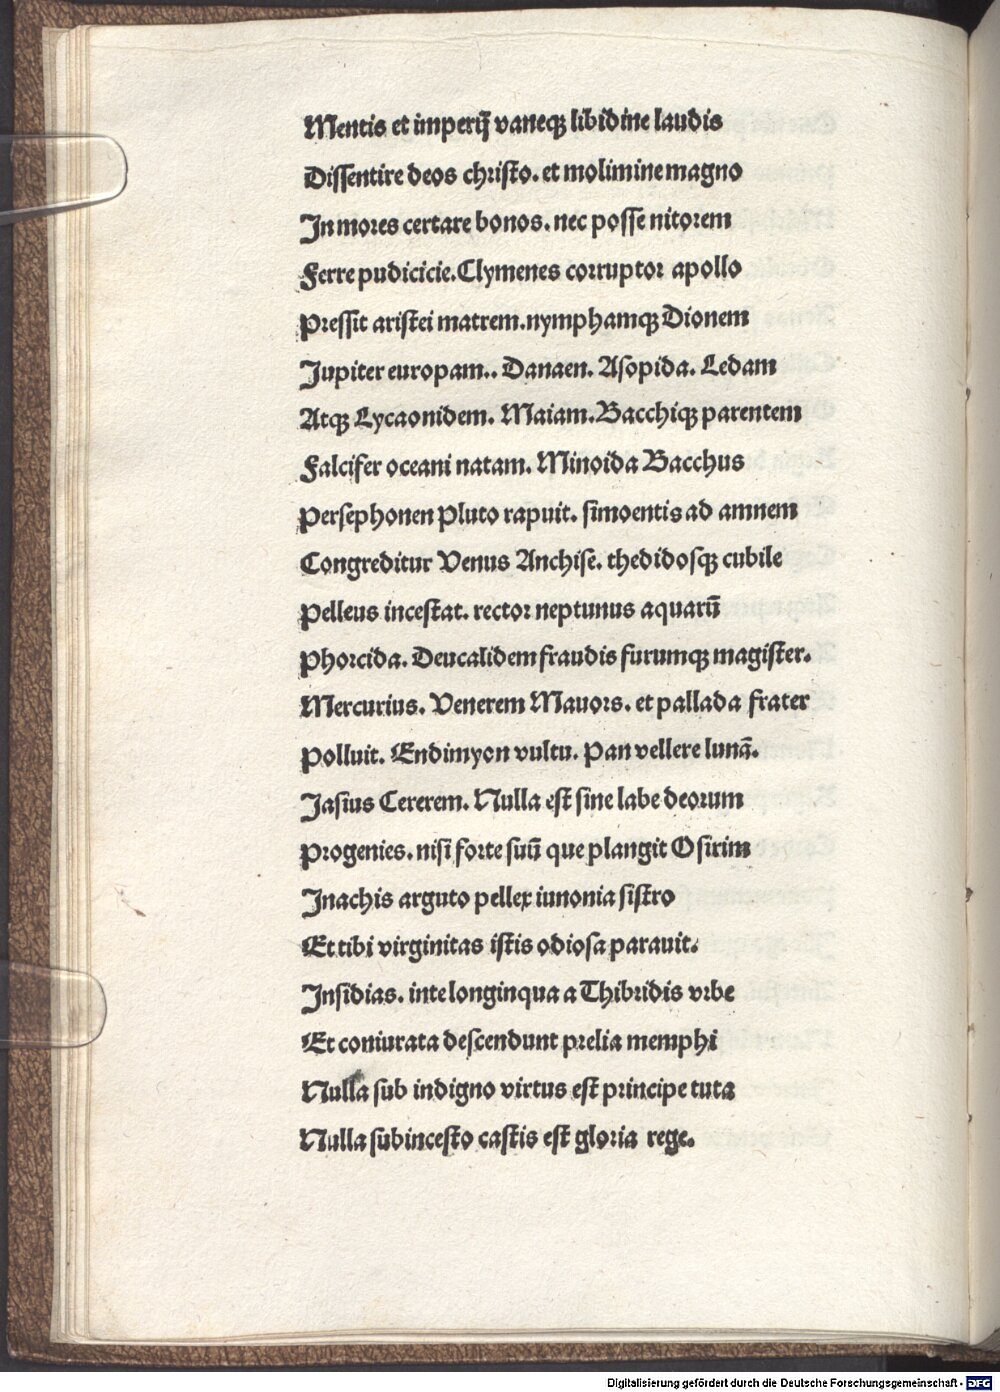 Mentis et imperij̄ vaneqꝫ libidine laudis
Dissentire deos christo. et molimine magno
In mores certare bonos. nec posse nitorem
Ferre pudicicie. Clymenes corruptor apollo
Pressit aristei matrem. nymphamqꝫ Dionem
Jupiter europam.. Danaen. Asopida. Ledam
Atqꝫ Lycaonidem. Maiam. Bacchiqꝫ parentem
Falcifer oceani natam. Minoida Bacchus
Persephonen Pluto rapuit. simoentis ad amnem
Congreditur Venus Anchise. thedidosqꝫ cubile
Pelleus incestat. rector neptunus aquarū
Phorcida. Deucalidem fraudis furumqꝫ magister.
Mercurius. Venerem Mauors. et pallada frater
Polluit. Endimyon vultu. Pan vellere lunā.
Jasius Cererem. Nulla est sine labe deorum
Progenies. nisi forte suū que plangit Osirim
Inachis arguto pellex iunonia sistro
Et tibi virginitas istis odiosa parauit.
Insidias. inte longinqua a Thibridis vrbe
Et coniurata descendunt prelia memphi
Nulla sub indigno virtus est principe tuta
Nulla subincesto castis est gloria rege.
Digitalisierung gefördert durch die Deutsche Forschungsgemeinschaft - DFG